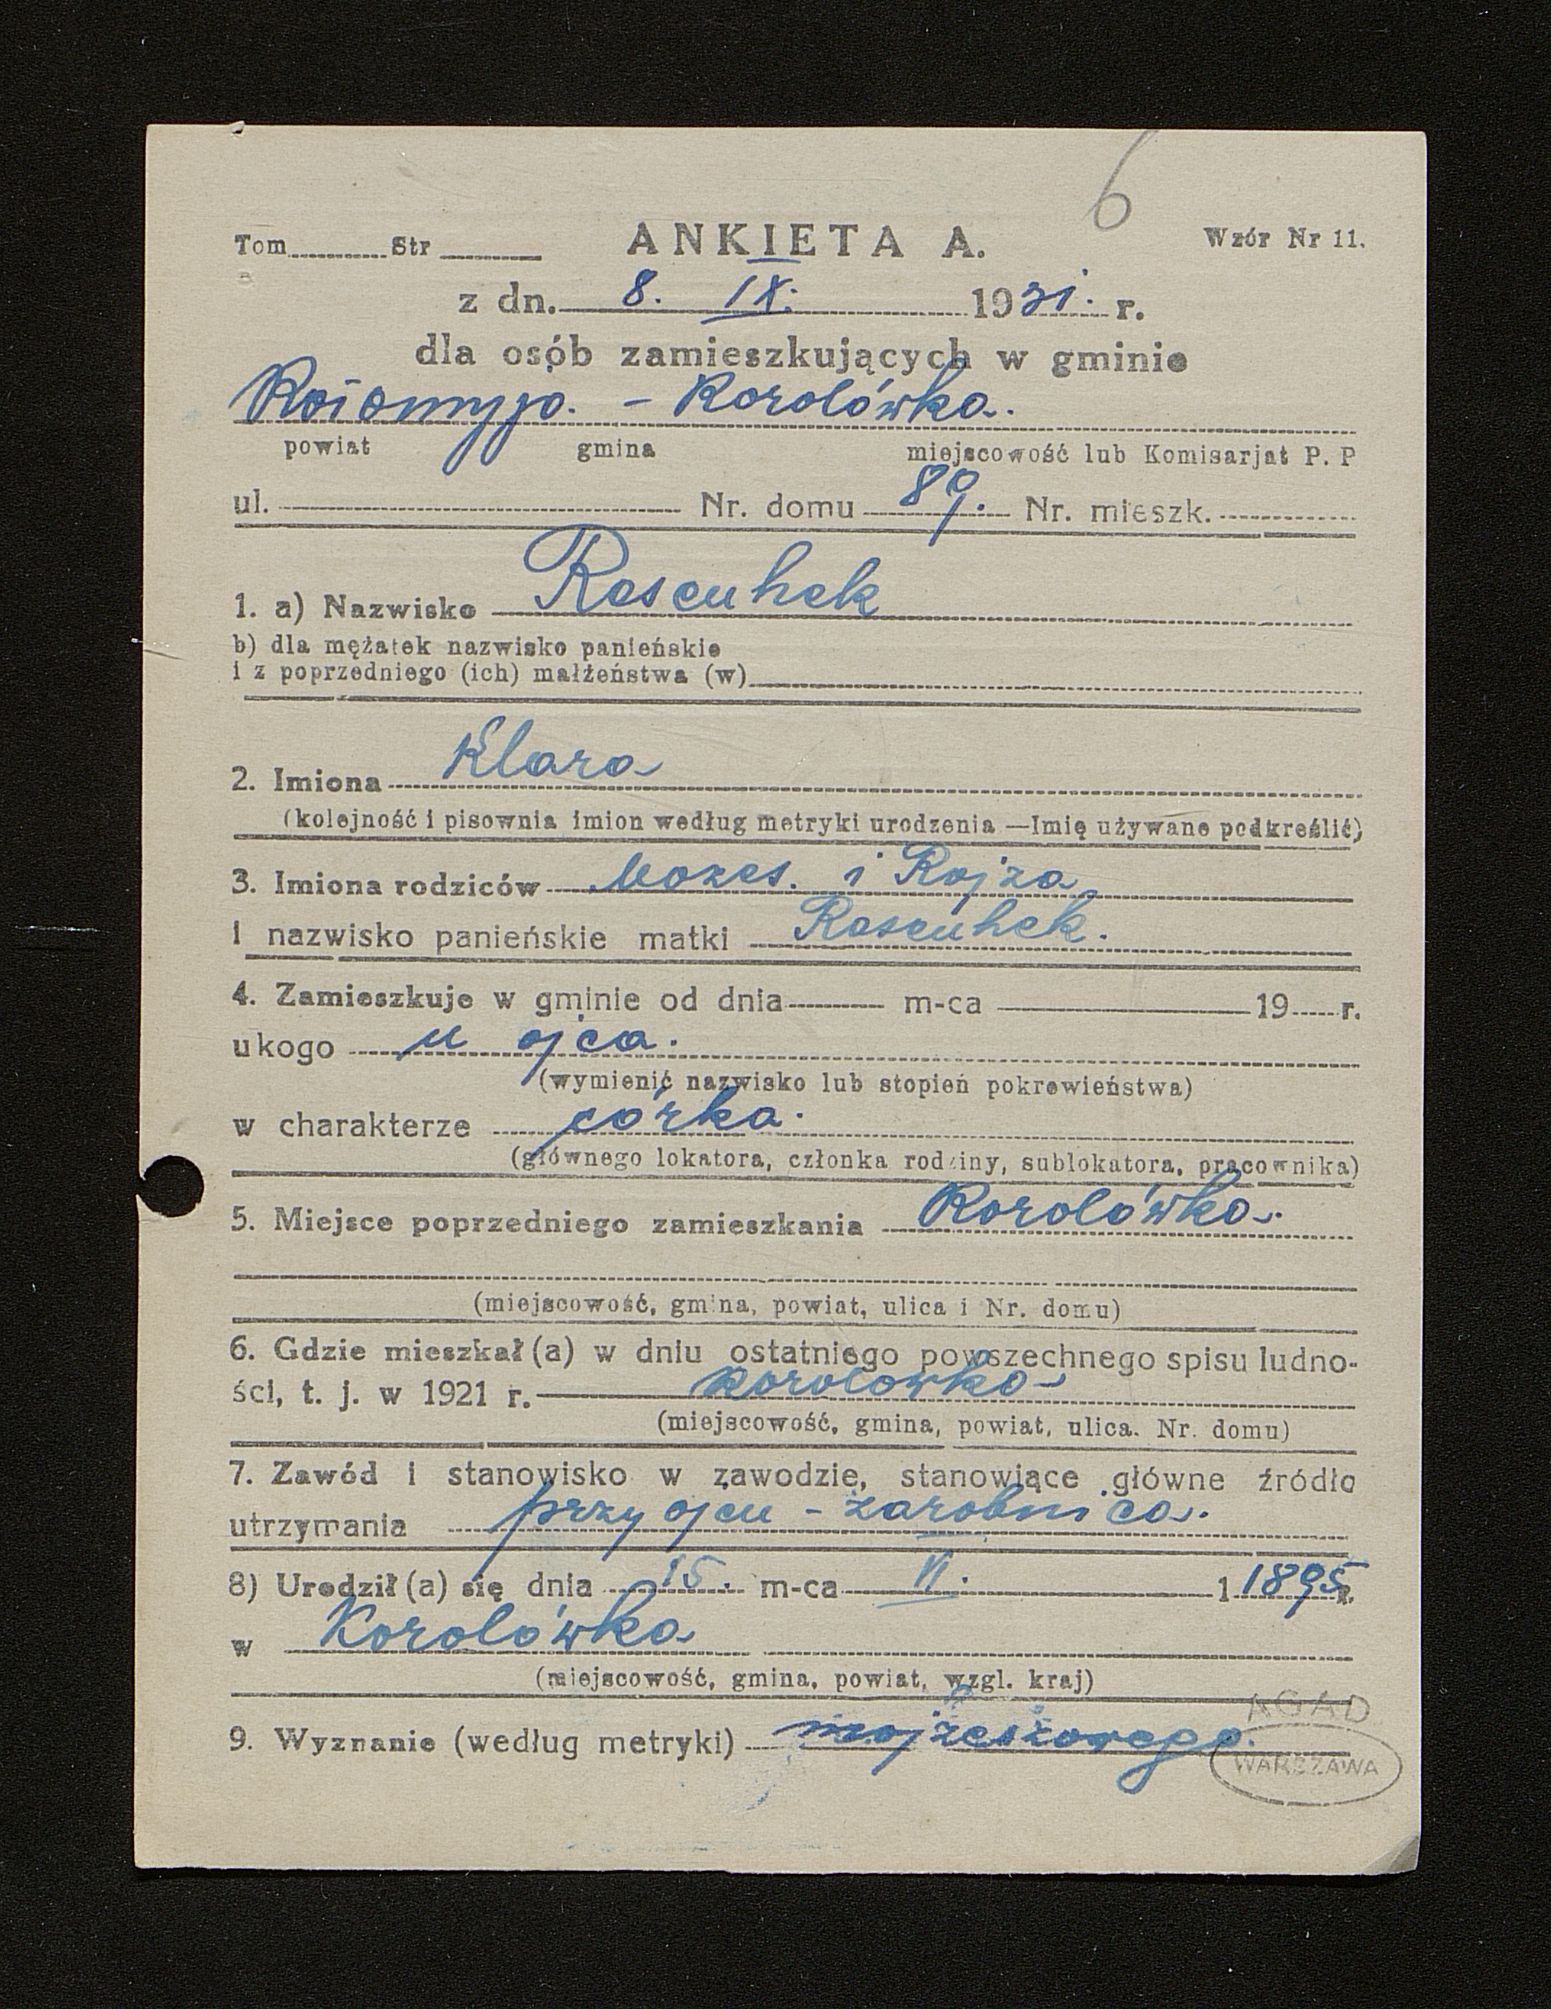 6
Tom Str ANKIETA A. Wzór Nr 11.
z dn. 8. IX. 1931. r.
dla osób zamieszkujących w gminie
Kołomyja. - Korolówka.
powiat gmina miejscowość lub Komisarjat P. P
ul. Nr. domu 89. Nr. mieszk.
1. a) Nazwisko Rosenhek
b) dla mężatek nazwisko panieńskie
i z poprzedniego (ich) małżeństwa (w)
2. Imiona Klara
(kolejność i pisownia imion według metryki urodzenia —Imię używane podkreślić)
3. Imiona rodziców Mozes. i Rojza
i nazwisko panieńskie matki Rosenhek.
4. Zamieszkuje w gminie od dnia m-ca 19 r.
u kogo u ojca.
(wymienić nazwisko lub stopień pokrewieństwa)
w charakterze córka.
(głównego lokatora, członka rodziny, sublokatora, pracownika)
5. Miejsce poprzedniego zamieszkania Korolówka.
(miejscowość, gmina, powiat, ulica i Nr. domu)
6. Gdzie mieszkał (a) w dniu ostatniego powszechnego spisu ludno-
ści, t. j. w 1921 r. Korolówka
(miejscowość, gmina, powiat, ulica. Nr. domu)
7. Zawód i stanowisko w zawodzie, stanowiące główne źródło
utrzymania przy ojcu - zarobnica.
8) Urodził (a) się dnia 15. m-ca VI. 1 1895 r.
w Korolówka
(miejscowość, gmina, powiat, wzgl. kraj)
9. Wyznanie (według metryki) mojżeszowego.
AGAD
WARSZAWA